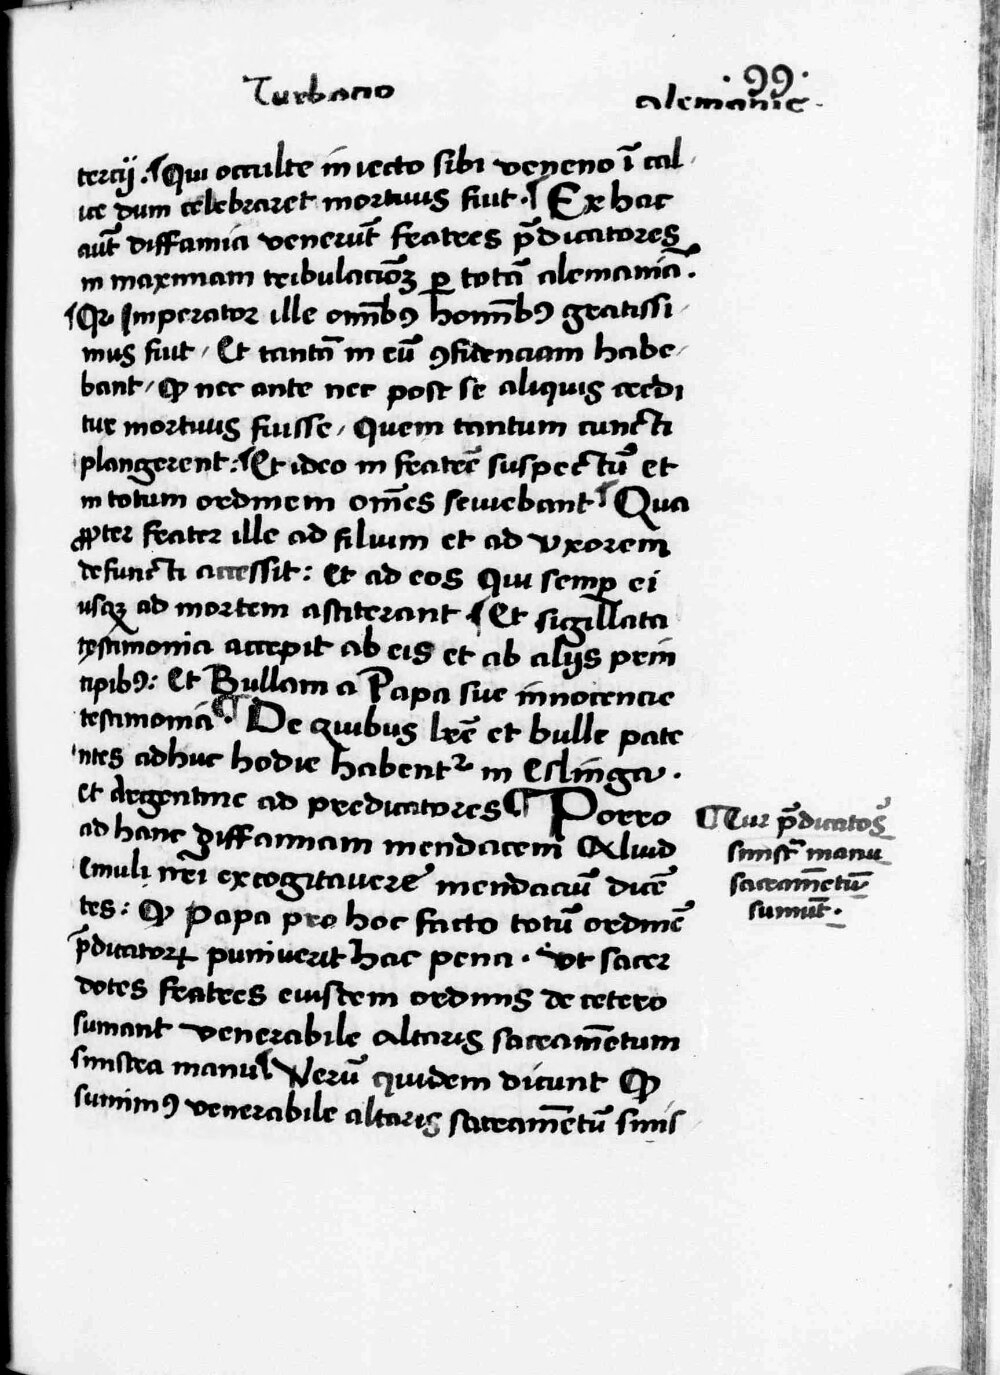 Turbacio
.99.
alemanie.
tercij. ¶ Qui occulte iniecto sibi veneno ī cal
ice dum celebraret mortuus fuit. ¶ Ex hac
aut̄ diffamia venerūt fratres p̄dicatores
in maximam tribulacioꝫ ꝑ totā alemaniā.
¶ Qꝛ Imperator ille om̄ibꝰ homībꝰ gratissi
mus fuit / Et tantā in eū ꝯfidenciam habe
bant / Ꝙ nec ante nec post se aliquis credi
tur mortuus fuisse / Quem tantum cuncti
plangerent: ¶ Et ideo in fratrē suspectū et
in totum ordinem om̄es seuiebant ¶ Qua
ꝓpter frater ille ad filium et ad vxorem
defuncti accessit: Et ad eos qui semꝑ ei
usqꝫ ad mortem astiterant. ¶ Et sigillata
testimonia accepit ab eis et ab alijs prin
cipibꝰ: Et Bullam a Papa sue innocencie
testimoniā. ¶ De quibus lr̄e et bulle pate
ntes adhuc hodie habent᷑ in Eslinga.
et Argentine ad predicatores ¶ Porro
ad hanc diffamiam mendacem Aliud
Emuli nr̄i excogitauere mendaciū dicē
tes: Ꝙ Papa pro hoc facto totū ordinē
p̄dicatoꝝ puniuerit hac pena. vt sacer
dotes fratres eiusdem ordinis de cetero
sumant venerabile altaris sacram̄entum
sinistra manu ¶ Verū quidem dicunt Ꝙ
sumimꝰ venerabile altaris sacram̄entū sinis
¶ Cur p̄dicatoꝝ
sinistᷓ manu
sacram̄etū
sumūt.